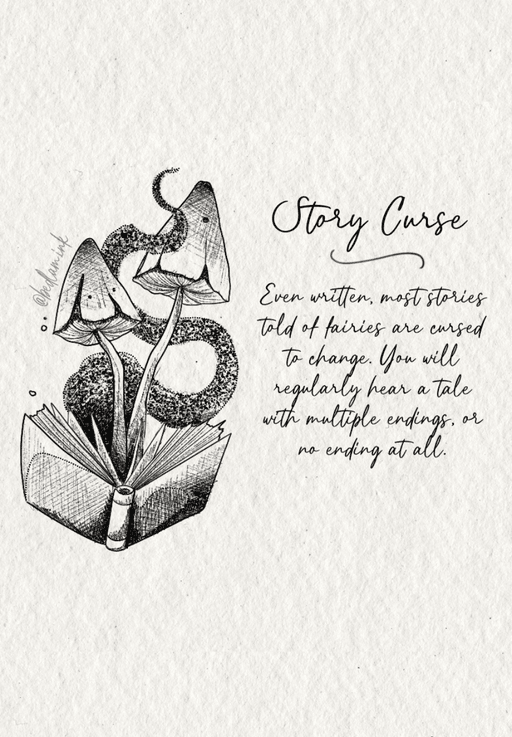 @bedlam.ink
Story Curse
Even written, most stories
told of fairies are cursed
to change. You will
regularly hear a tale
with multiple endings, or
no ending at all.